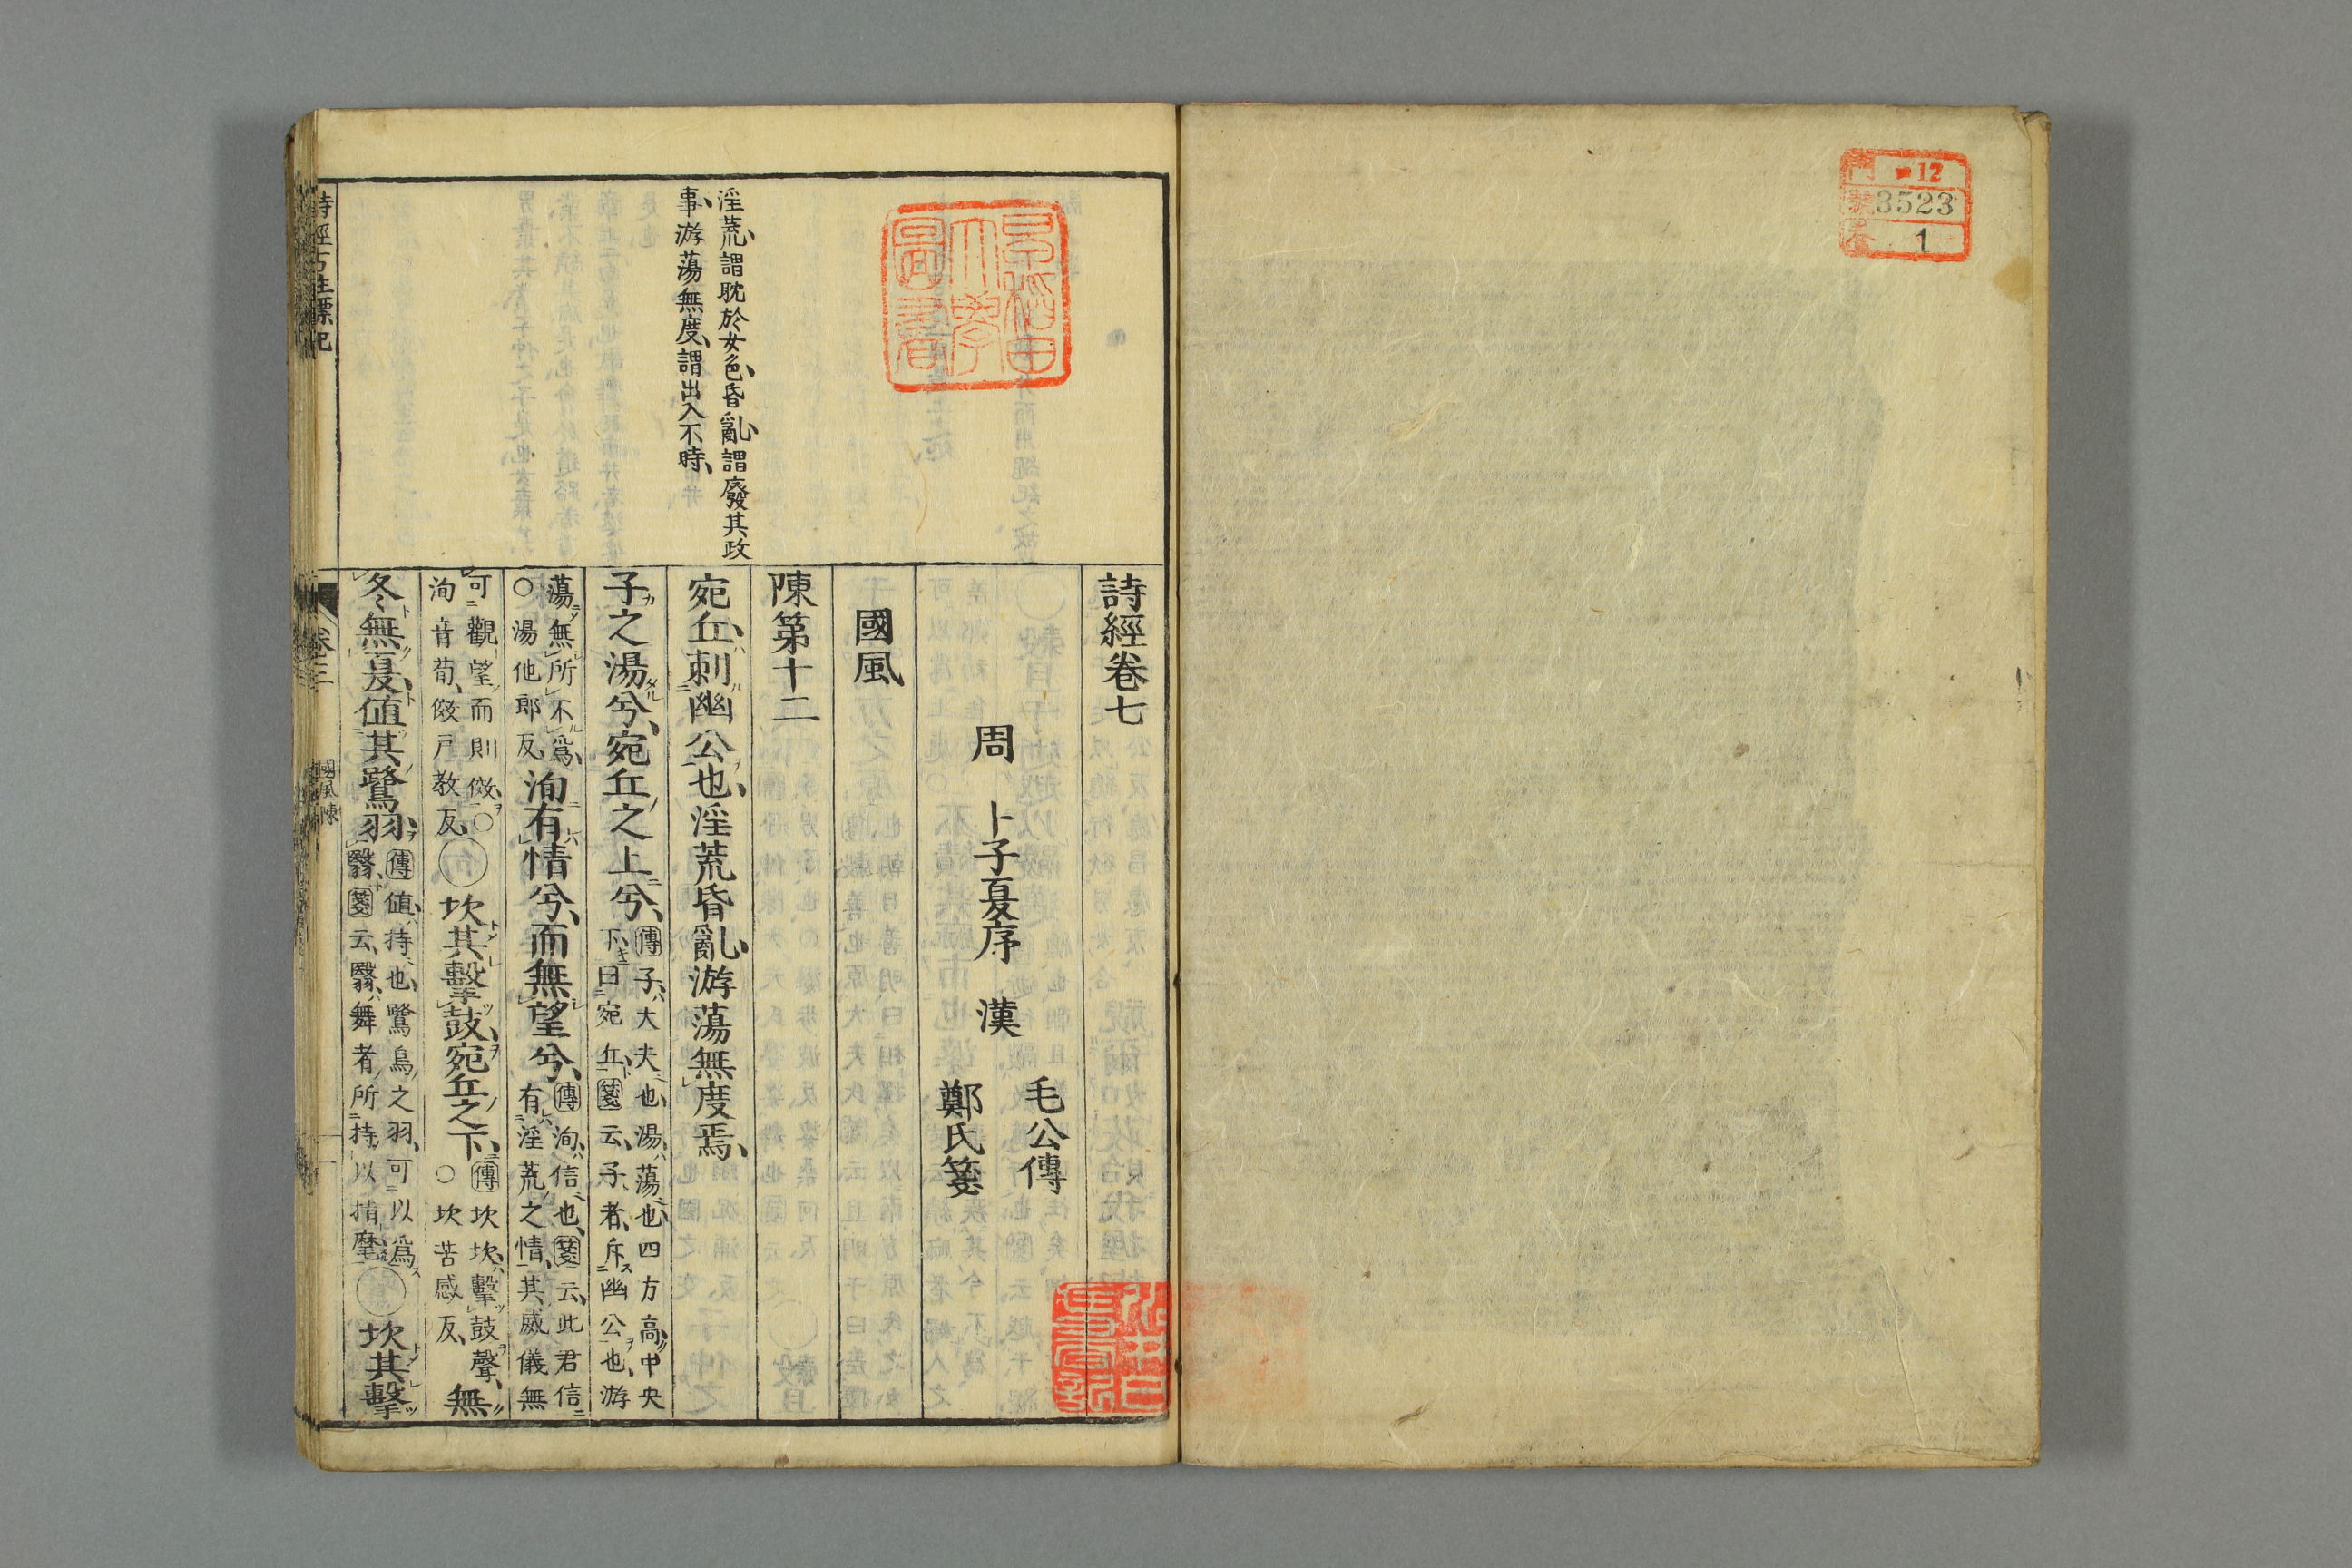 門 12
號 3523
卷 1
淫荒、謂耽於女色、昏亂、謂廢其政
事、游蕩無度、謂出入不時、
詩經卷七
周 卜子夏序 漢 毛公傳
鄭氏箋
國風
陳第十二
宛丘、刺幽公也、淫荒昏亂、游蕩無度焉、
子之湯兮、宛丘之上兮、傳子、大夫也、湯、蕩也、四方高、中央
下、曰宛丘、箋云、子者、斥幽公也、游
蕩無所不爲、
○湯他郎反、
洵有情兮、而無望兮、傳洵、信也、箋云、此君信
有淫荒之情、其威儀無
可觀望而則傚、○
洵音荀、傚戸教反、
○坎其擊鼓、宛丘之下、傳坎坎、擊鼓聲、
○坎苦感反、
無
冬無夏、値其鷺羽、傳値、持也、鷺鳥之羽、可以爲
翳、箋云、翳、舞者所持以指麾、
○坎其擊
詩經古註標記
卷三
國風陳